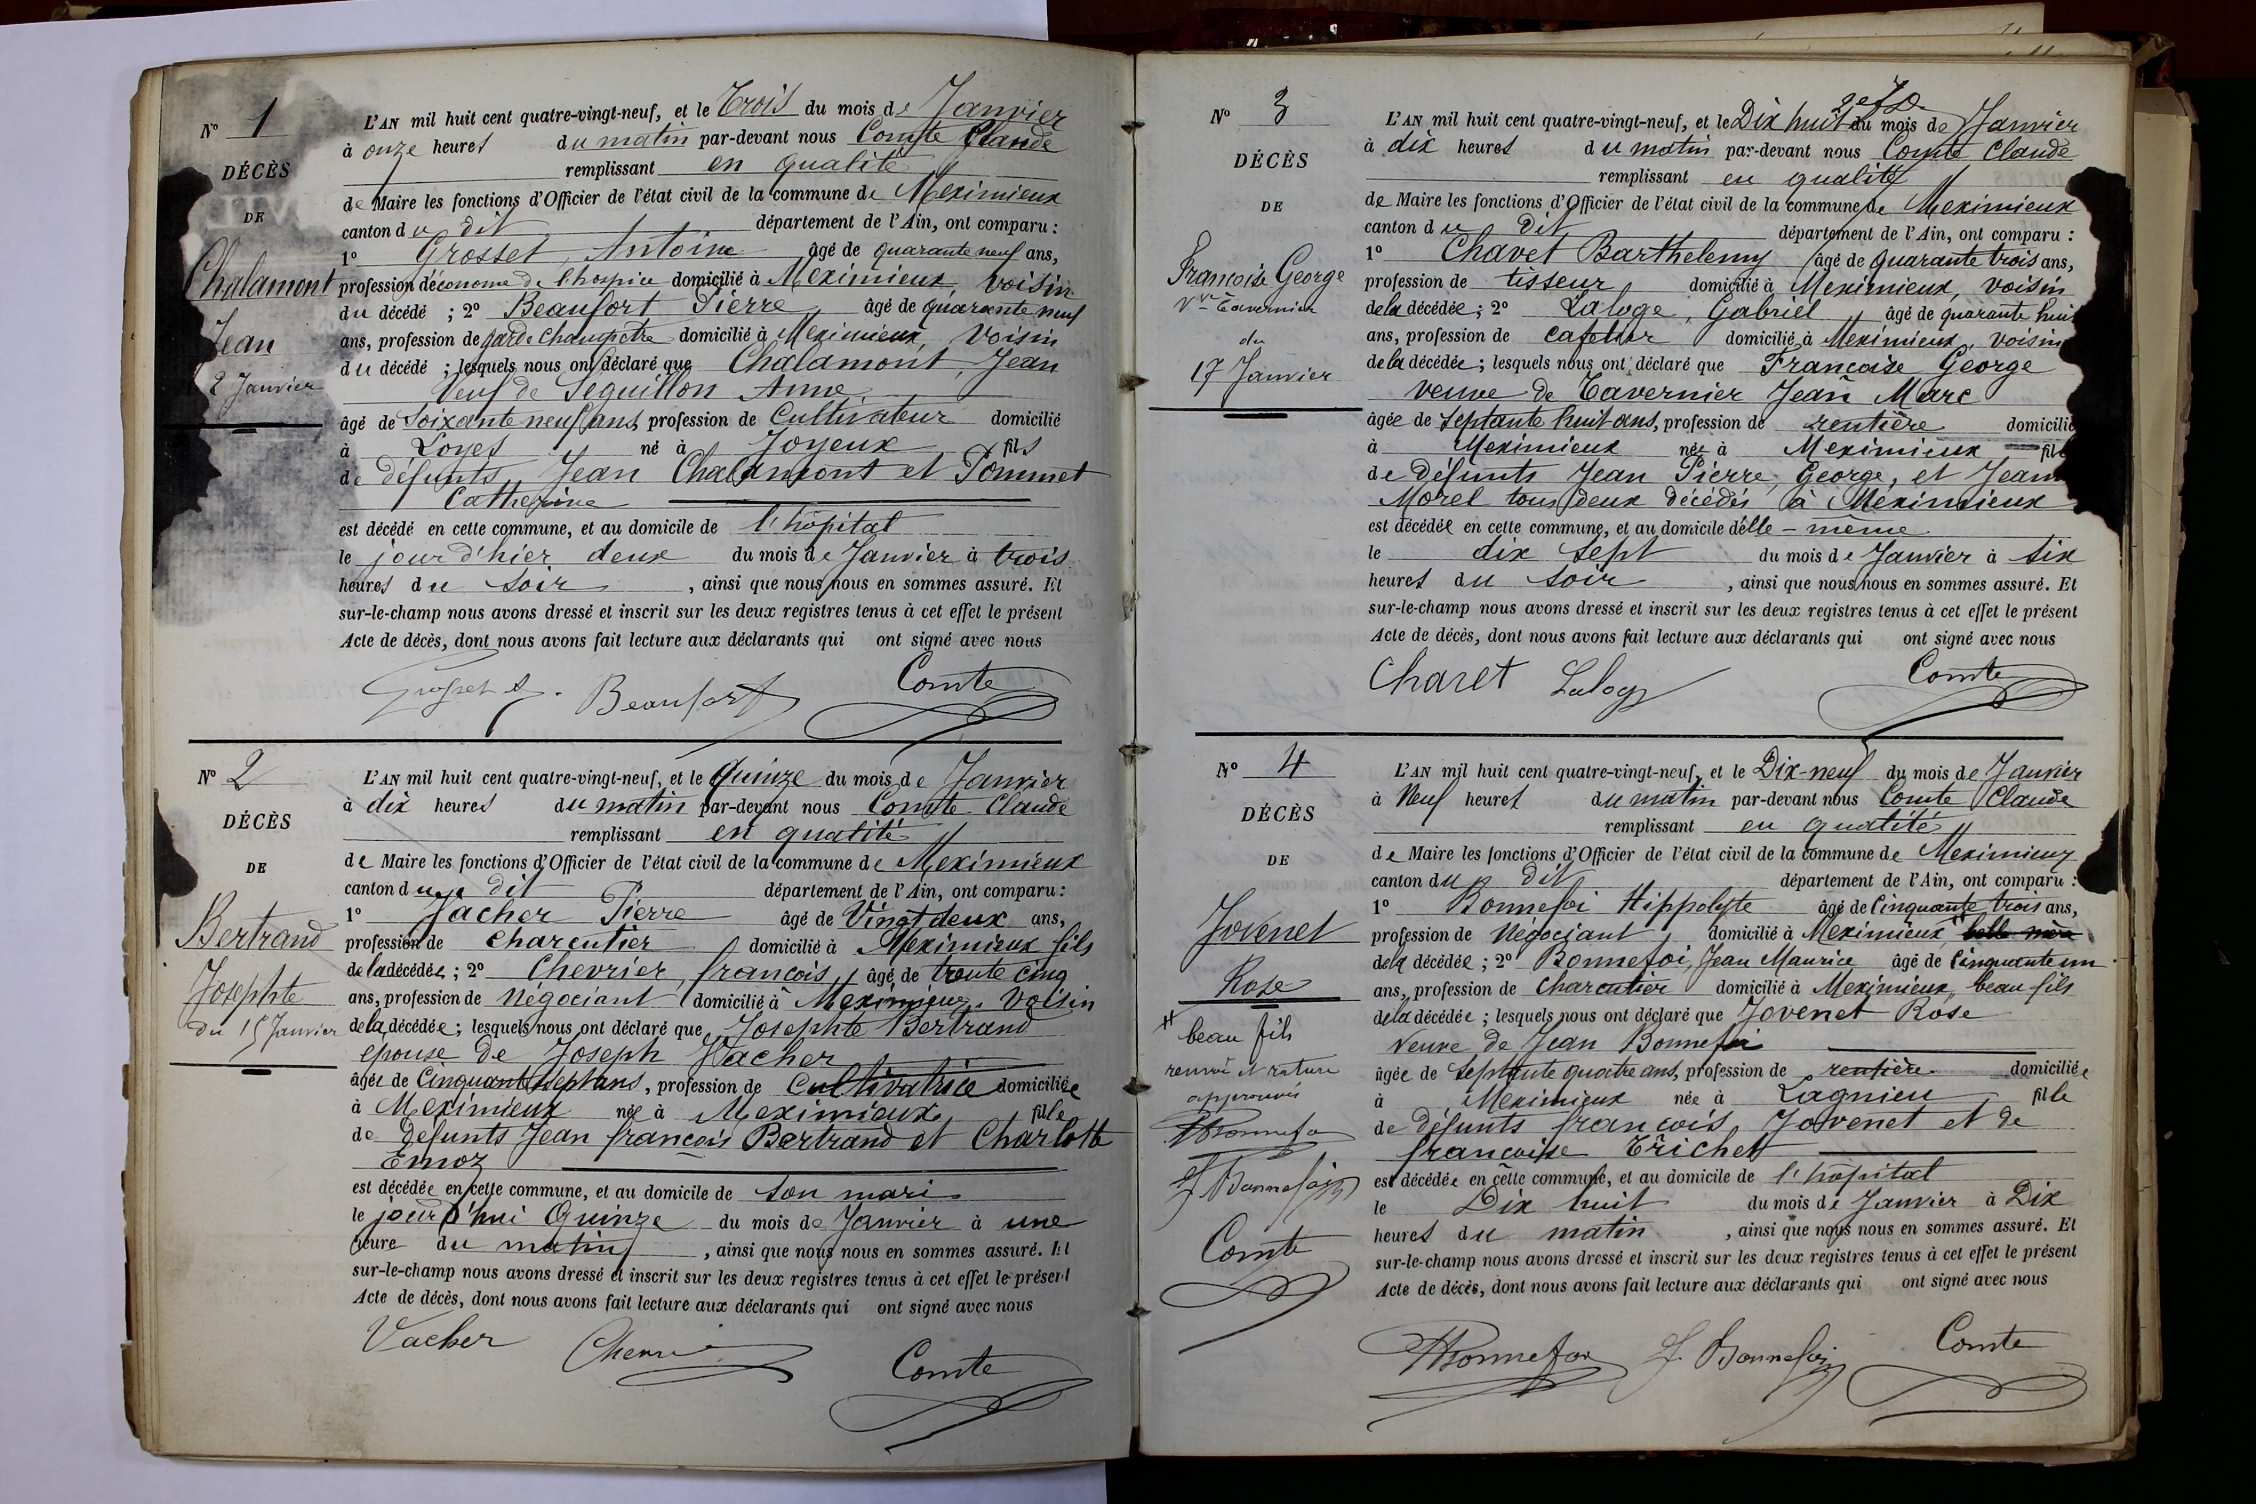 N° 1
DÉCÈS
DE
Chalamont
Jean
2 Janvier
L'AN mil huit cent quatre-vingt-neuf, et le Trois du mois de Janvier
à onze heures du matin par-devant nous Comte Claude
remplissant en qualité
de Maire les fonctions d'Officier de l'état civil de la commune de Meximieux
canton du dit département de l'Ain, ont comparu :
1° Grosset, Antoine âgé de quarante neuf ans,
profession d'économe de l'hospice domicilié à Meximieux, voisin
du décédé ; 2° Beaufort Pierre âgé de quarante neuf
ans, profession de garde champêtre domicilié à Meximieux, voisin
du décédé ; lesquels nous ont déclaré que Chalamont, Jean
Veuf de Seguillon Anne
âgé de Soixante neuf ans, profession de Cultivateur domicilié
à Loyes né à Joyeux fils
de défunts Jean Chalamont et Pommet
Catherine
est décédé en cette commune, et au domicile de l'hôpital
le jour d'hier deux du mois de Janvier à trois
heures du soir , ainsi que nous nous en sommes assuré. Et
sur-le-champ nous avons dressé et inscrit sur les deux registres tenus à cet effet le présent
Acte de décès, dont nous avons fait lecture aux déclarants qui ont signé avec nous
Grosset A. Beaufort Comte
N° 2
DÉCÈS
DE
Bertrand
Josephte
du 15 Janvier
L'AN mil huit cent quatre-vingt-neuf, et le Quinze du mois de Janvier
à dix heures du matin par-devant nous Comte Claude
remplissant en qualité
de Maire les fonctions d'Officier de l'état civil de la commune de Meximieux
canton du dit département de l'Ain, ont comparu :
1° Vacher Pierre âgé de Vingt deux ans,
profession de charcutier domicilié à Meximieux fils
de la décédée ; 2° Chevrier, françois, âgé de trente cinq
ans, profession de Négociant domicilié à Meximieux, voisin
de la décédée ; lesquels nous ont déclaré que Josephte Bertrand
épouse de Joseph Vacher
âgée de Cinquante sept ans, profession de cultivatrice domiciliée
à Meximieux née à Meximieux fille
de défunts Jean françois Bertrand et Charlotte
Emoz
est décédée en cette commune, et au domicile de son mari
le jour d'hui Quinze du mois de Janvier à une
heure du matin , ainsi que nous nous en sommes assuré. Et
sur-le-champ nous avons dressé et inscrit sur les deux registres tenus à cet effet le présent
Acte de décès, dont nous avons fait lecture aux déclarants qui ont signé avec nous
Vacher Chevrier Comte
N° 3
DÉCÈS
DE
Francoise George
Vve Tavernier
du
17 Janvier
L'AN mil huit cent quatre-vingt-neuf, et le Dix huit du mois de Janvier
à dix heures du matin par-devant nous Comte Claude
remplissant en qualité
de Maire les fonctions d'Officier de l'état civil de la commune de Meximieux
canton du Dit département de l'Ain, ont comparu :
1° Chavet Barthelemy âgé de quarante trois ans,
profession de tisseur domicilié à Meximieux, voisin
de la décédée ; 2° Laloge, Gabriel, âgé de quarante huit
ans, profession de cafetier domicilié à Meximieux, voisin
de la décédée ; lesquels nous ont déclaré que Francoise George
veuve de Tavernier Jean Marc
âgée de Septante huit ans, profession de rentière domicilié
à Meximieux née à Meximieux fille
de défunts Jean Pierre, George, et Jeanne
Morel tous deux décédés à Meximieux
est décédée en cette commune, et au domicile d'elle-même
le dix sept du mois de Janvier à six
heures du soir , ainsi que nous nous en sommes assuré. Et
sur-le-champ nous avons dressé et inscrit sur les deux registres tenus à cet effet le présent
Acte de décès, dont nous avons fait lecture aux déclarants qui ont signé avec nous
Chavet Laloge Comte
N° 4
DÉCÈS
DE
Jovenet
Rose
beau fils
renvoi et rature
approuvés
HBonnefoi
J. Bonnefoi
Comte
L'AN mil huit cent quatre-vingt-neuf, et le Dix-neuf du mois de Janvier
à Neuf heures du matin par-devant nous Comte Claude
remplissant en qualité
de Maire les fonctions d'Officier de l'état civil de la commune de Meximieux
canton du dit département de l'Ain, ont comparu :
1° Bonnefoi Hippolyte âgé de Cinquante trois ans,
profession de Négociant domicilié à Meximieux, belle mère
de la décédée ; 2° Bonnefoi, Jean Maurice âgé de Cinquante un
ans, profession de Charcutier domicilié à Meximieux, beau fils
de la décédée ; lesquels nous ont déclaré que Jovenet Rose
Veuve de Jean Bonnefoi
âgée de Septante quatre ans, profession de rentière domiciliée
à Meximieux née à Lagnieu fille
de défunts francois Jovenet et de
francoise Trichet
est décédée en cette commune, et au domicile de l'hôpital
le Dix huit du mois de Janvier à Dix
heures du matin , ainsi que nous nous en sommes assuré. Et
sur-le-champ nous avons dressé et inscrit sur les deux registres tenus à cet effet le présent
Acte de décès, dont nous avons fait lecture aux déclarants qui ont signé avec nous
HBonnefoi J. Bonnefoi Comte